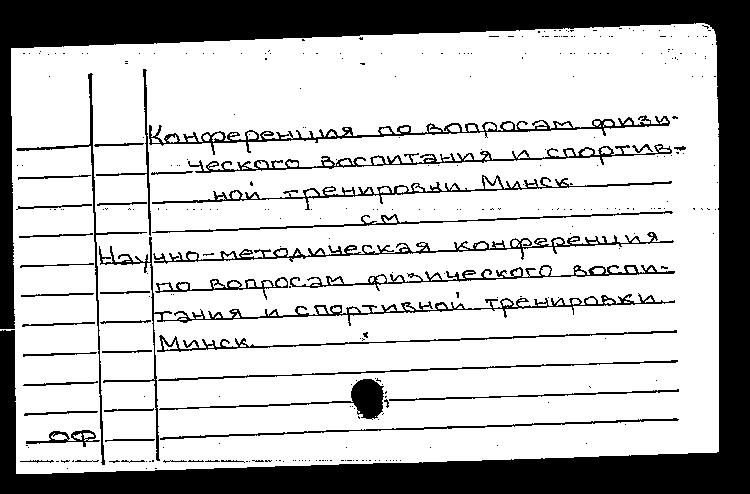 Конференция по вопросам физи-
ческого воспитания и спортив-
ной тренировки. Минск.
см.
Научно-методическая конференция
по вопросам физического воспи-
тания и спортивной тренировки.
Минск.
ОФ